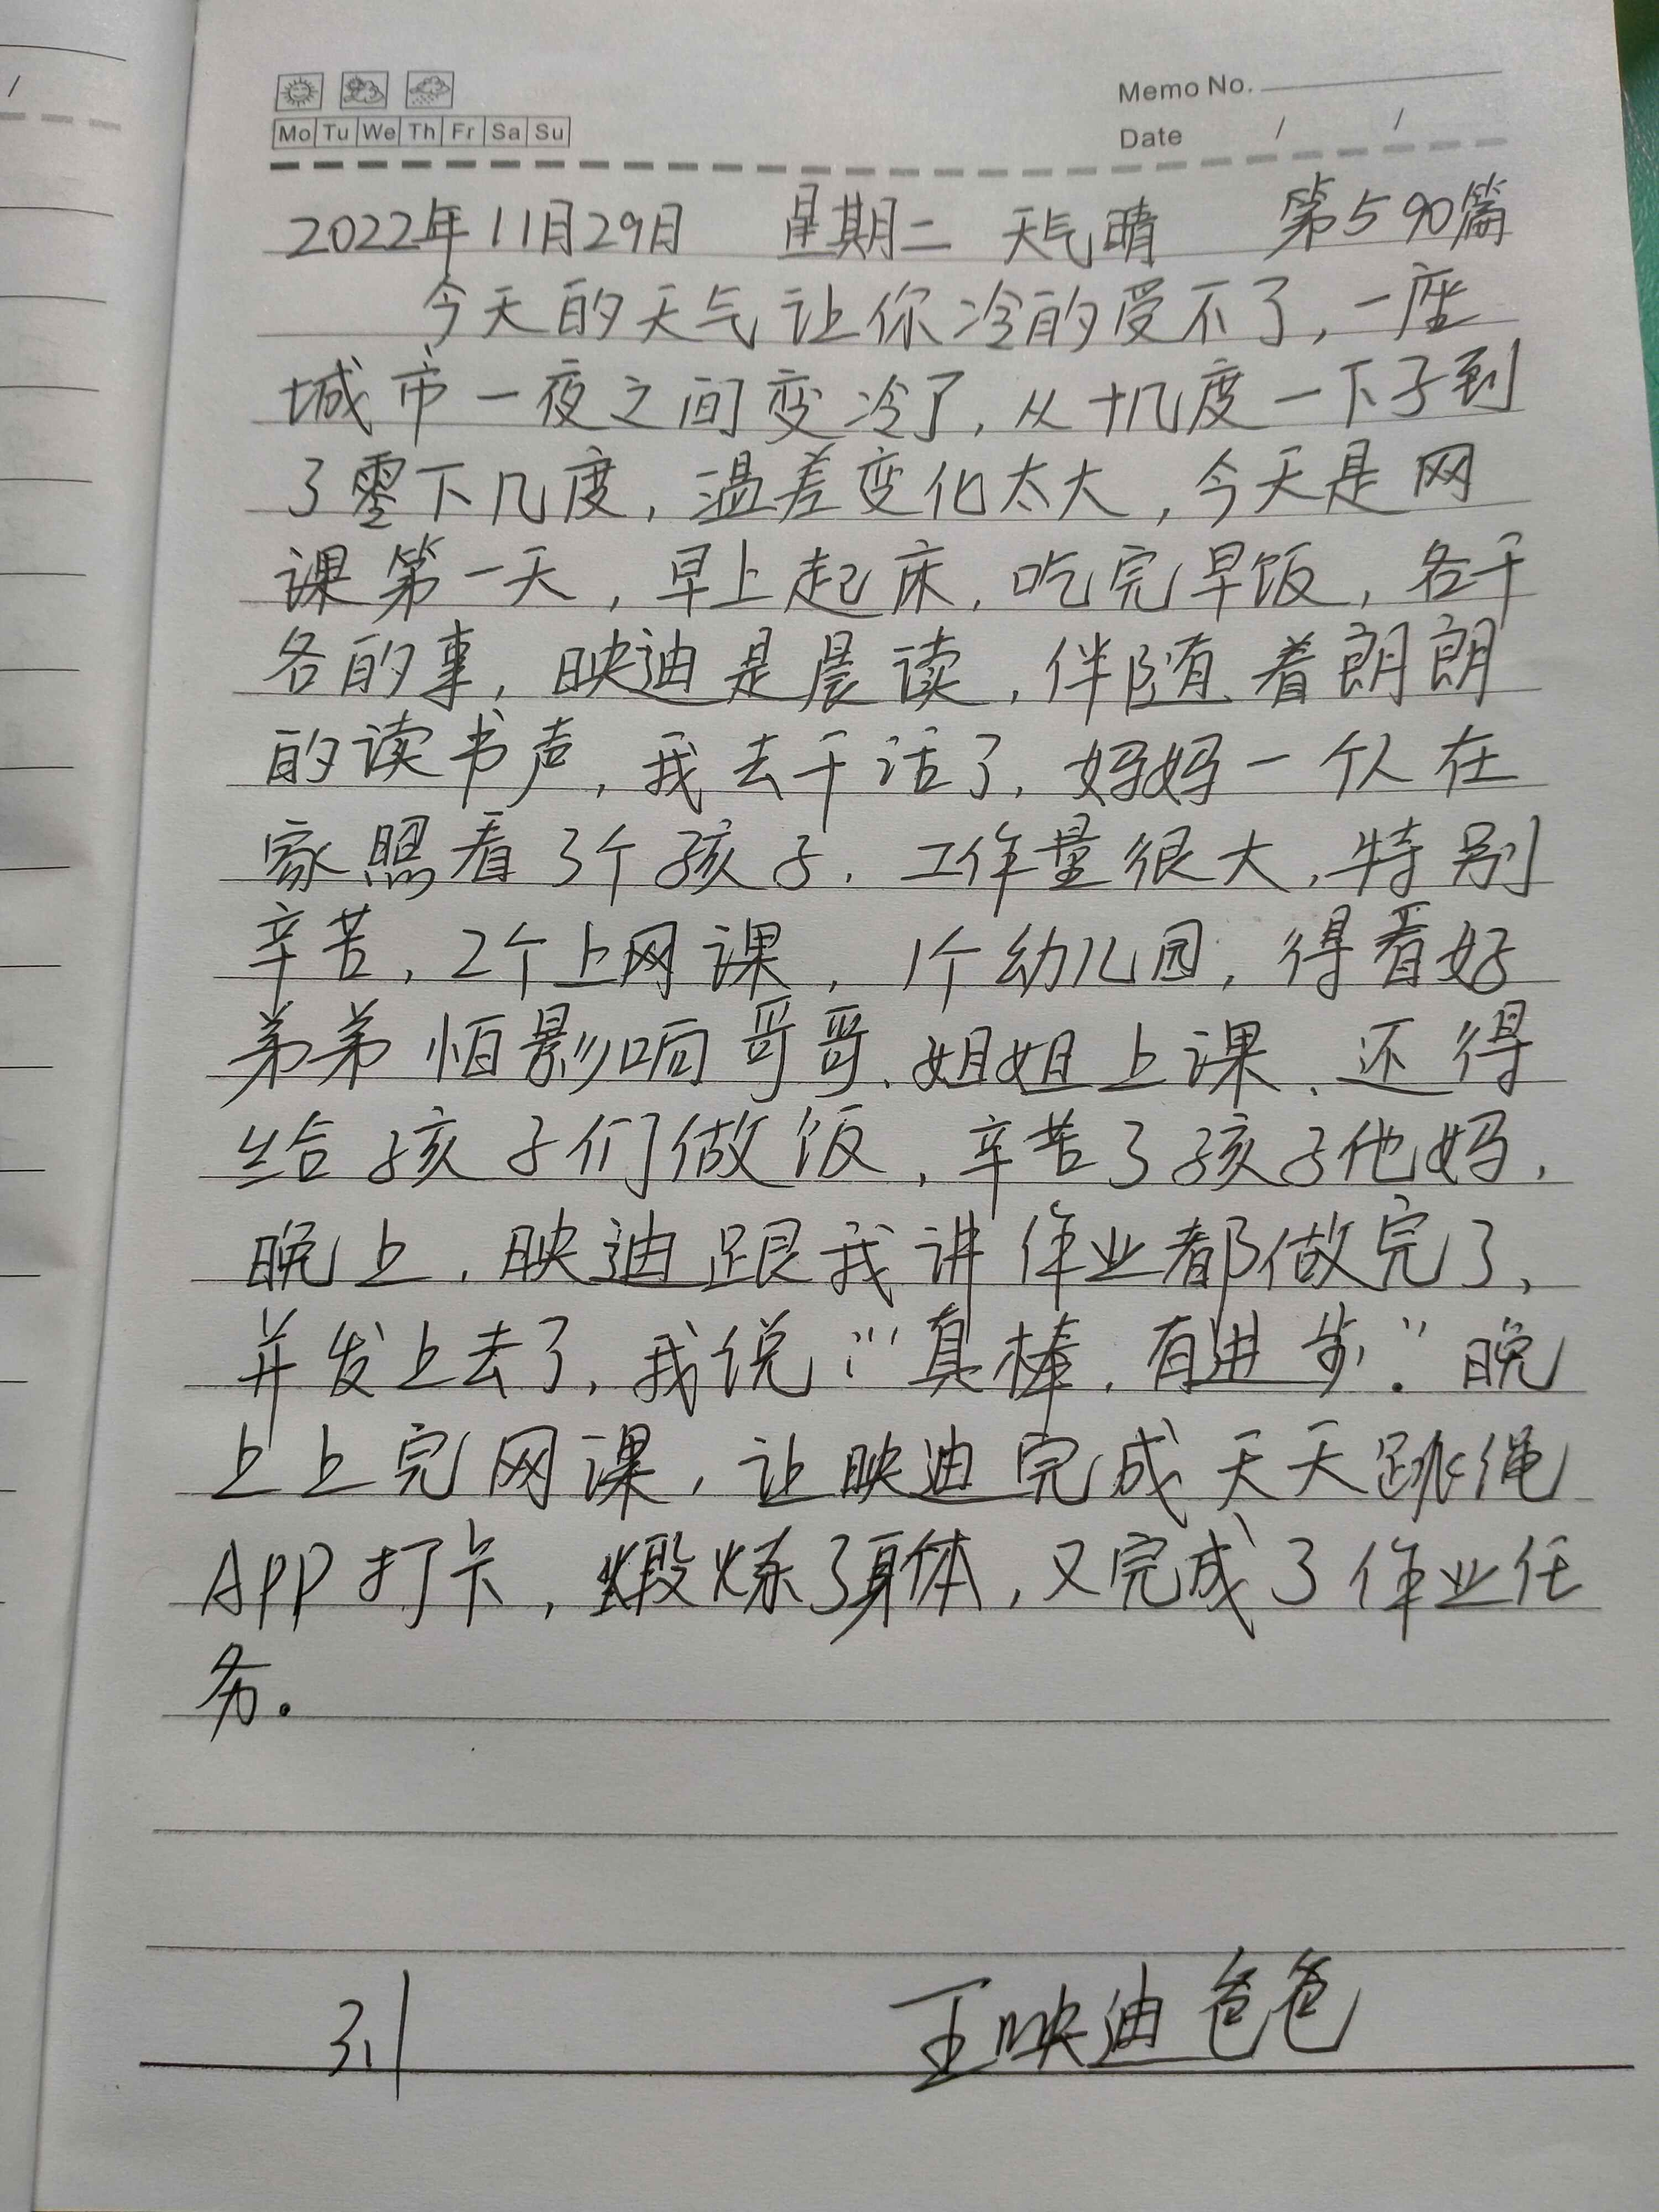 Memo No.
Mo Tu We Th Fr Sa Su
Date / /
2022年11月29日 星期二 天气晴 第590篇
今天的天气让你冷的受不了,一座
城市一夜之间变冷了,从十几度一下子到
了零下几度,温差变化太大,今天是网
课第一天,早上起床,吃完早饭,各干
各的事,映迪是晨读,伴随着朗朗
的读书声,我去干活了,妈妈一个人在
家照看3个孩子.工作量很大,特别
辛苦,2个上网课,1个幼儿园,得看好
弟弟怕影响哥哥、姐姐上课、还得
给孩子们做饭,辛苦了孩子他妈,
晚上,映迪跟我讲作业都做完了,
并发上去了,我说:“真棒,有进步.”晚
上上完网课,让映迪完成天天跳绳
APP打卡,煅炼了身体,又完成了作业任
务.
3.1 王映迪爸爸